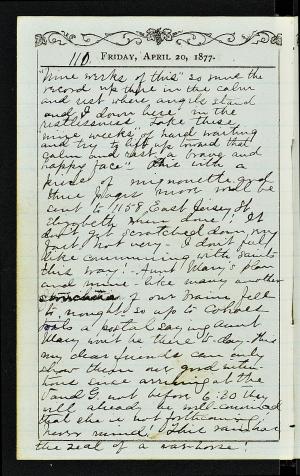 110. FRIDAY, APRIL 20, 1877.
"Nine weeks of this" so runs the
record up there in the calm
and rest where angels stand
and I down here in the
restlessness take these
nine weeks of hard waiting
and try to lift up toward that
calm and rest a brave and
happy face. This with
of mignonette
three pages more will be
sent to 1158 East Jersey St
Elizabeth when done! It
don't get scratched down very
fast, not very - I don't feel
like communing with saints
this way! - Aunt Mary's plan
and mine - like many another
of our brains fell
to nought, so up to Cohoes
a postal saying Aunt
Mary won't be there to-day. Thus
my dear friends can only
show them our good inten-
tions since arriving at the
and G, not before 6.20 they
will already be well convinced
that she is not forthcoming;
never mind! This
the zeal of a war-horse!